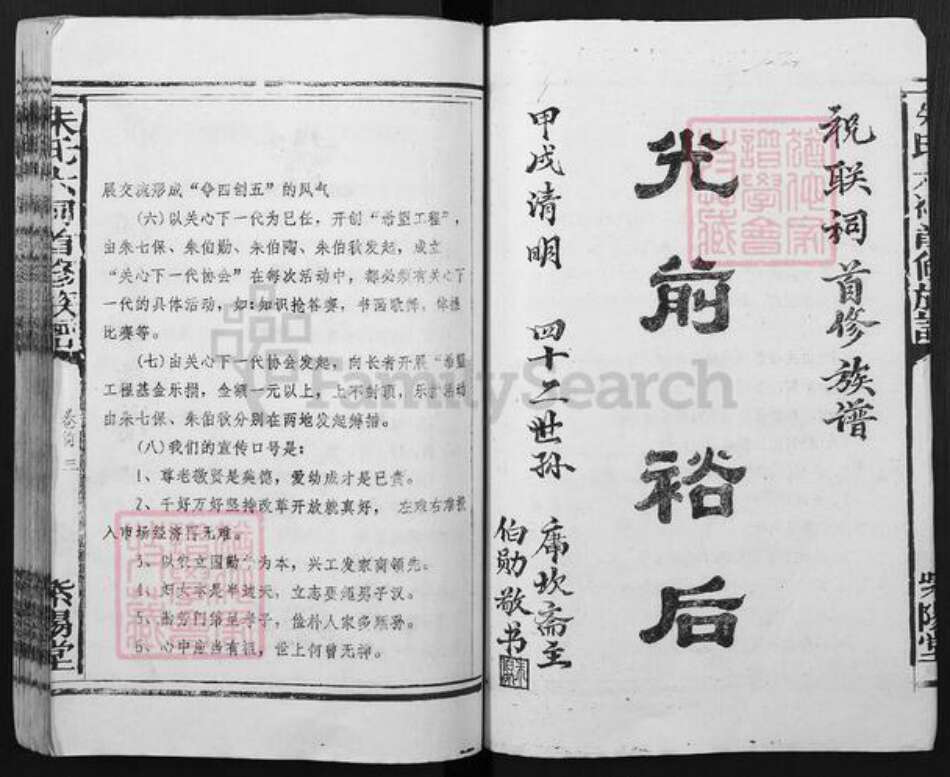 祝联祠首修族谱
光前裕后
甲戌清明 四十二世孙
席坎斋主
伯勋敬书
展交流形成“夺四创五”的风气
(六)以关心下一代为己任，开创“希望工程”，
由朱七保、朱伯勋、朱伯陶、朱伯钦发起，成立
“关心下一代协会”在每次活动中，都必须有关心下
一代的具体活动，如:知识抢答赛，书画歌舞，体操
比赛等。
(七)由关心下一代协会发起，向长者开展“希望
工程基金乐捐，金额一元以上，上不封顶，乐捐活动
由朱七保、朱伯钦分别在两地发起筹措。
(八)我们的宣传口号是：
1、尊老敬贤是美德，爱幼成才是己责。
2、千好万好坚持改革开放就真好，左难右难投
入市场经济
3、以农立国勤为本，兴工发家商领先。
4、妇女本是半边天，立志要超男子汉。
5、勤劳门第生孝子，俭朴人家多顺孙。
6、心中应当有祖，世上何曾无神。
朱氏六祠首修族谱
卷首
三
紫阳堂
FamilySearch